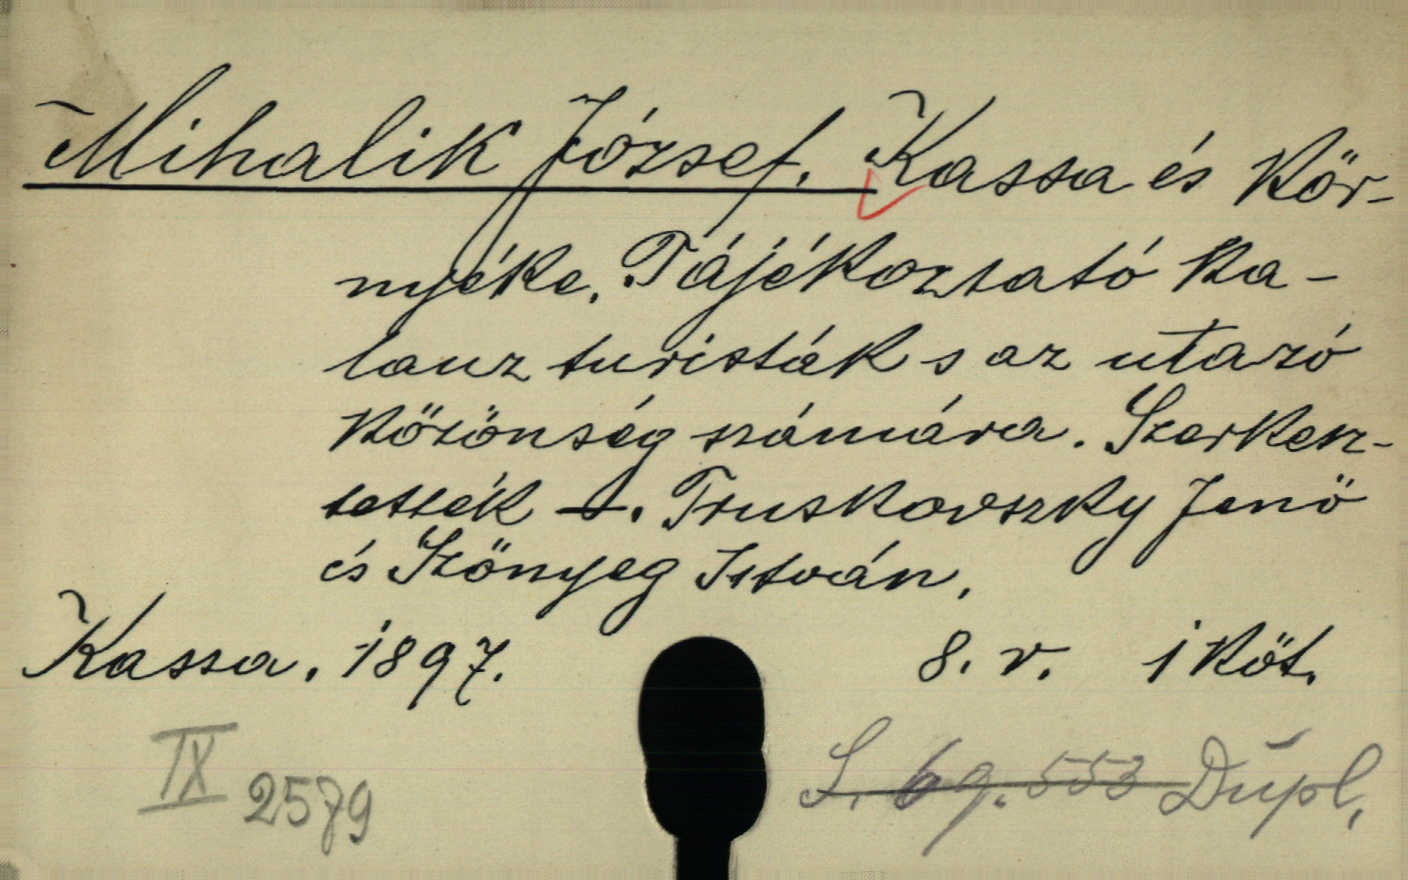 Mihalik József. Kassa és kör-
nyéke. Tájékoztató ka-
lauz turisták s az utazó
közönség számára. Szerkesz-
tették —. Truskovszky Jenö
és Szönyeg István.
Kassa. 1897. 8. r. 1 köt.
IX 2579 L. 69. 553 Dupl.